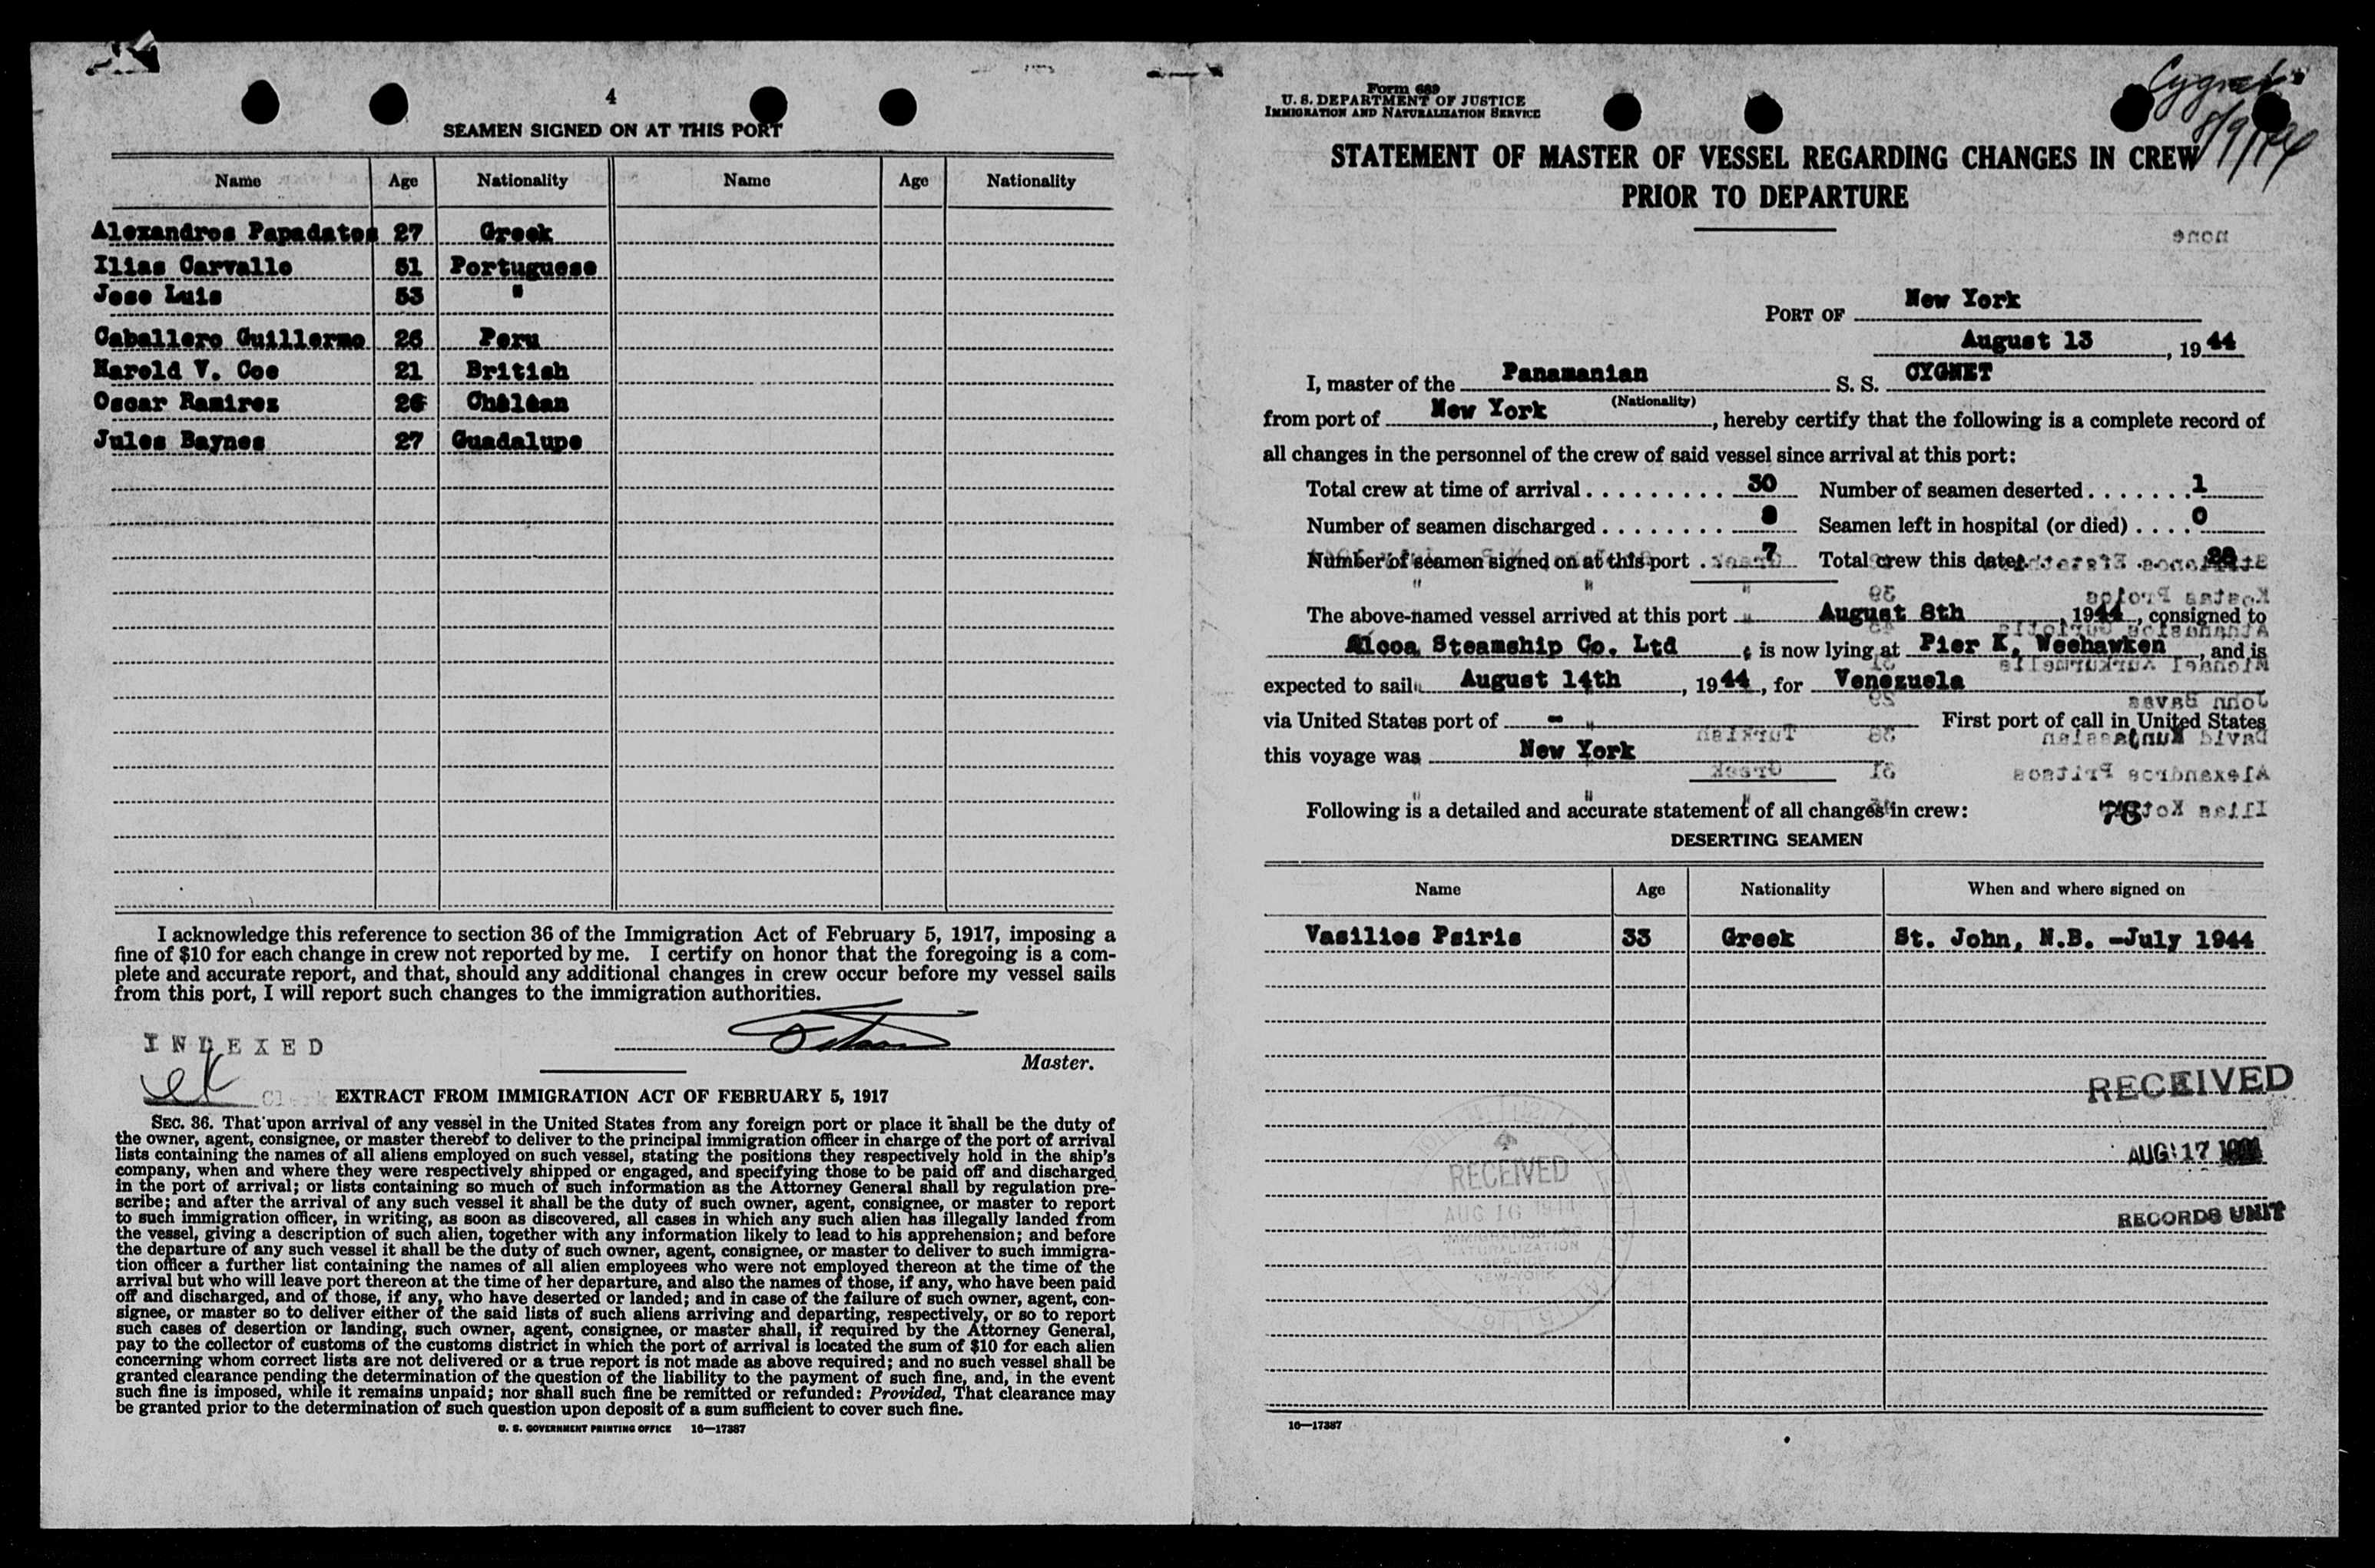 4
SEAMEN SIGNED ON AT THIS PORT
Name Age Nationality Name Age Nationality
Alexandros Papadatos 27 Greek
Ilias Carvallo 51 Portuguese
Jose Luis 53 "
Caballero Guillermo 26 Peru
Harold V. Coe 21 British
Oscar Ramirez 26 Chilean
Jules Baynes 27 Guadalupe
I acknowledge this reference to section 36 of the Immigration Act of February 5, 1917, imposing a
fine of $10 for each change in crew not reported by me. I certify on honor that the foregoing is a com-
plete and accurate report, and that, should any additional changes in crew occur before my vessel sails
from this port, I will report such changes to the immigration authorities.
Master.
INDEXED
Clerk
EXTRACT FROM IMMIGRATION ACT OF FEBRUARY 5, 1917
SEC. 36. That upon arrival of any vessel in the United States from any foreign port or place it shall be the duty of
the owner, agent, consignee, or master thereof to deliver to the principal immigration officer in charge of the port of arrival
lists containing the names of all aliens employed on such vessel, stating the positions they respectively hold in the ship's
company, when and where they were respectively shipped or engaged, and specifying those to be paid off and discharged
in the port of arrival; or lists containing so much of such information as the Attorney General shall by regulation pre-
scribe; and after the arrival of any such vessel it shall be the duty of such owner, agent, consignee, or master to report
to such immigration officer, in writing, as soon as discovered, all cases in which any such alien has illegally landed from
the vessel, giving a description of such alien, together with any information likely to lead to his apprehension; and before
the departure of any such vessel it shall be the duty of such owner, agent, consignee, or master to deliver to such immigra-
tion officer a further list containing the names of all alien employees who were not employed thereon at the time of the
arrival but who will leave port thereon at the time of her departure, and also the names of those, if any, who have been paid
off and discharged, and of those, if any, who have deserted or landed; and in case of the failure of such owner, agent, con-
signee, or master so to deliver either of the said lists of such aliens arriving and departing, respectively, or so to report
such cases of desertion or landing, such owner, agent, consignee, or master shall, if required by the Attorney General,
pay to the collector of customs of the customs district in which the port of arrival is located the sum of $10 for each alien
concerning whom correct lists are not delivered or a true report is not made as above required; and no such vessel shall be
granted clearance pending the determination of the question of the liability to the payment of such fine, and, in the event
such fine is imposed, while it remains unpaid; nor shall such fine be remitted or refunded: Provided, That clearance may
be granted prior to the determination of such question upon deposit of a sum sufficient to cover such fine.
U. S. GOVERNMENT PRINTING OFFICE 16—17387
Form 689
U. S. DEPARTMENT OF JUSTICE
IMMIGRATION AND NATURALIZATION SERVICE
Cygnet
STATEMENT OF MASTER OF VESSEL REGARDING CHANGES IN CREW
PRIOR TO DEPARTURE
PORT OF New York
August 13, 1944
I, master of the Panamanian S. S. CYGNET
(Nationality)
from port of New York, hereby certify that the following is a complete record of
all changes in the personnel of the crew of said vessel since arrival at this port:
Total crew at time of arrival . . . . . . . . . . 30 Number of seamen deserted . . . . . . . 1
Number of seamen discharged . . . . . . . . . 8 Seamen left in hospital (or died) . . . . 0
Number of seamen signed on at this port . 7 Total crew this date 28
The above-named vessel arrived at this port August 8th, 1944, consigned to
Alcoa Steamship Co. Ltd, is now lying at Pier K, Weehawken, and is
expected to sail August 14th, 1944, for Venezuela
via United States port of - First port of call in United States
this voyage was New York
Following is a detailed and accurate statement of all changes in crew:
76
DESERTING SEAMEN
Name Age Nationality When and where signed on
Vasilios Psiris 33 Greek St. John, N.B. -July 1944
RECEIVED
AUG 17 1944
RECORDS UNIT
RECEIVED
AUG 16 1944
IMMIGRATION AND
NATURALIZATION
SERVICE
NEW YORK
16—17387